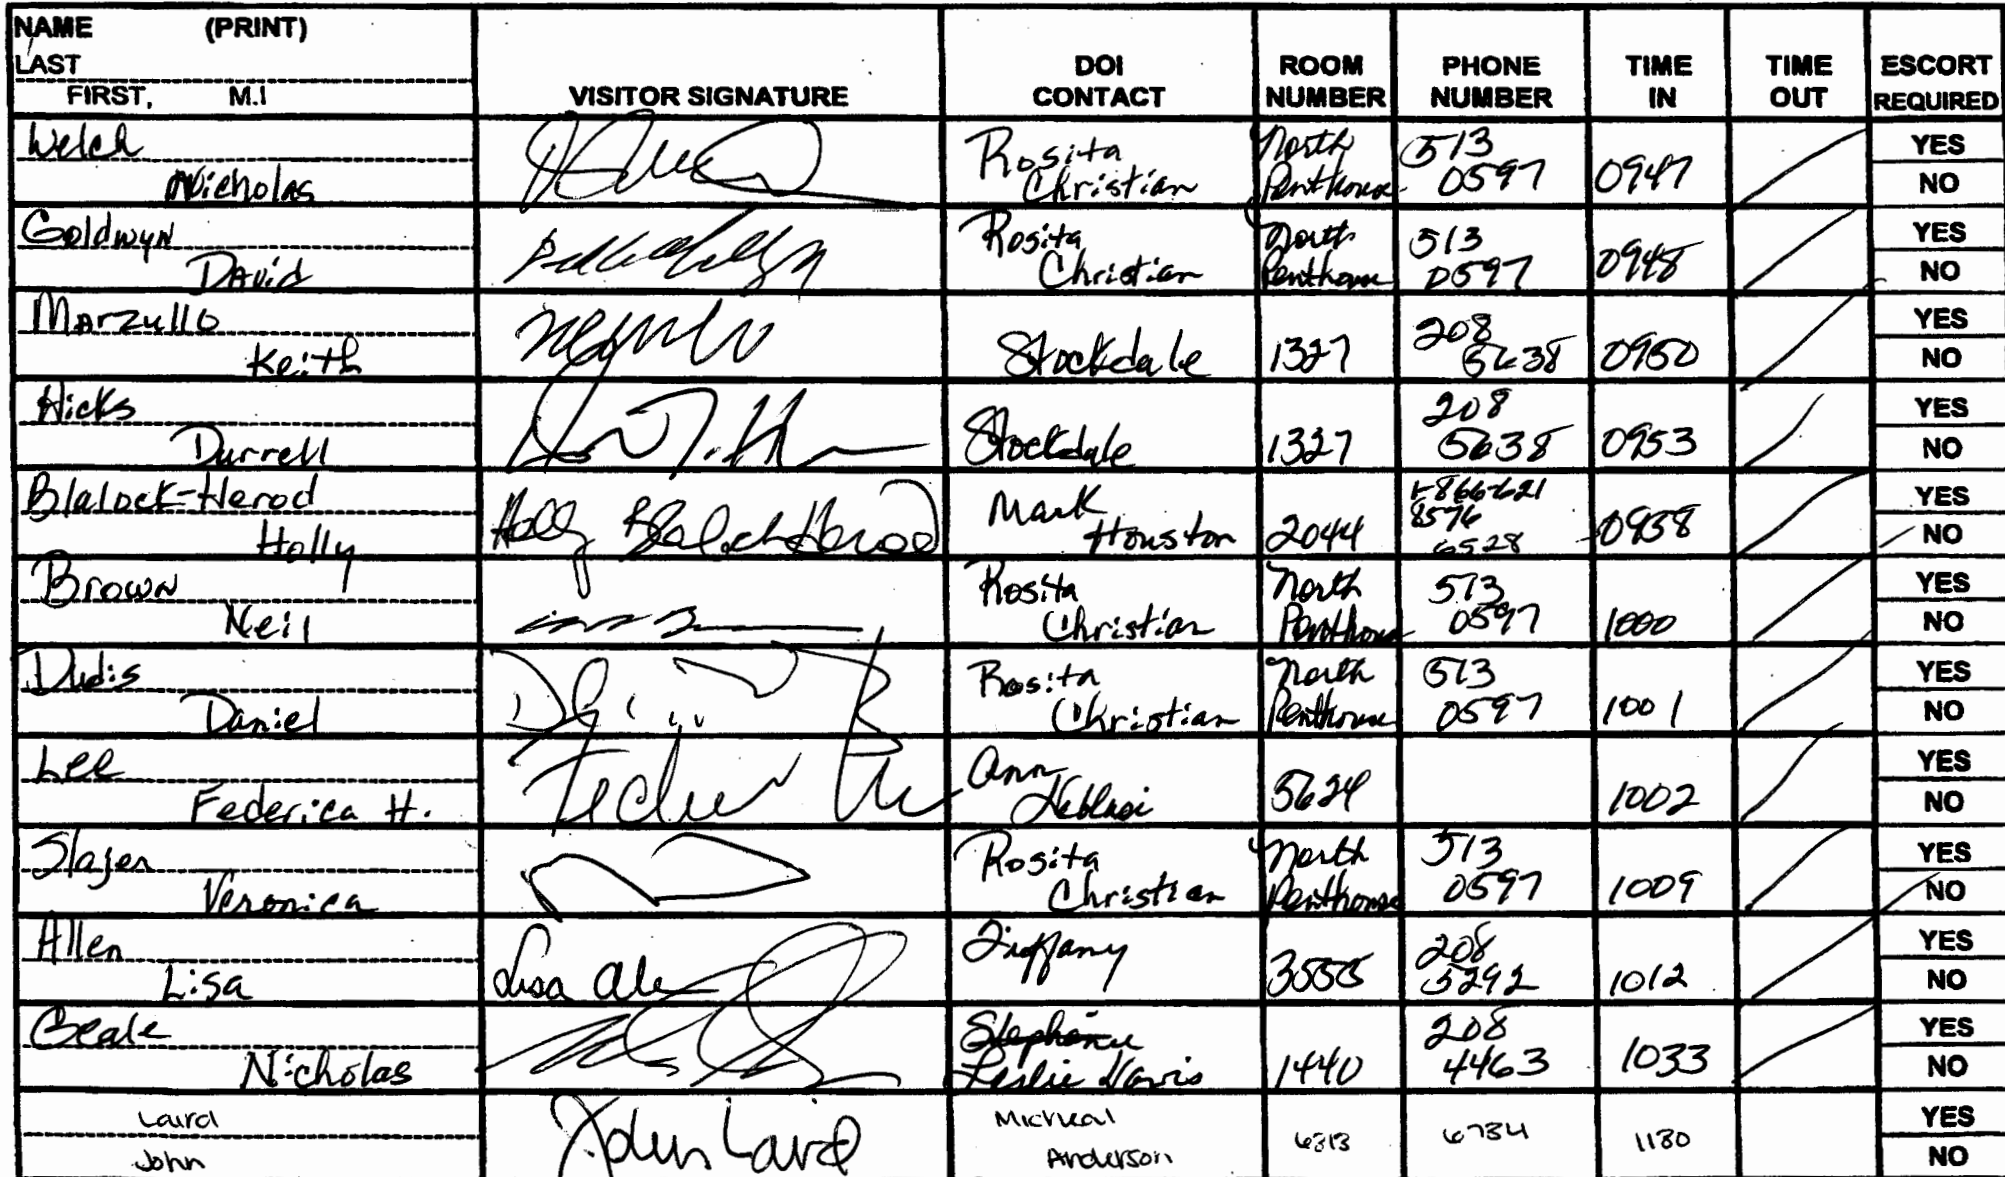 NAME (PRINT)
LAST
FIRST, M.I
VISITOR SIGNATURE
DOI CONTACT
ROOM NUMBER
PHONE NUMBER
TIME IN
TIME OUT
ESCORT REQUIRED
Welch
Nicholas
Rosita Christian
North Penthouse
513 0597
0947
YES
NO
Goldwyn
David
Rosita Christian
North Penthouse
513 0597
0948
YES
NO
Marzullo
Keith
Stockdale
1327
208 5638
0950
YES
NO
Hicks
Durrell
Stockdale
1327
208 5638
0953
YES
NO
Blalock-Herod
Holly
Holly Blalock Herod
Mark Houston
2044
1-866-621 8576 6528
0958
YES
NO
Brown
Neil
Rosita Christian
North Penthouse
513 0597
1000
YES
NO
Dudis
Daniel
Rosita Christian
North Penthouse
513 0597
1001
YES
NO
Lee
Federica H.
Ann
5624
1002
YES
NO
Slajer
Veronica
Rosita Christian
North Penthouse
513 0597
1009
YES
NO
Allen
Lisa
Lisa
Tiffany
3555
208 5292
1012
YES
NO
Beale
Nicholas
Stephanie
Leslie
1440
208 4463
1033
YES
NO
Laird
John
John Laird
Micheal
Anderson
6313
6734
1130
YES
NO